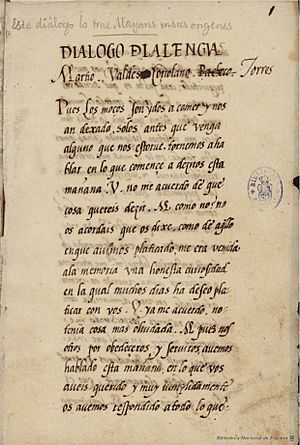 1
Este diálogo lo trae Mayans en sus origenes
DIALOGO DLALENGVA
Martio. Valdés. Coriolano. Pacheco. Torres
Pues los moços son ydos a comer y nos
an dexado solos antes que venga
alguno que nos estorve, tornemos aha
blar en lo que comence a deziros esta
mañana. V. no me acuerdo de que
cosa quereis dezir. M. como no? no
os acordais que os dixe, como de aqllo
enque avíamos platicado, me era venida
ala memoria vna honesta curiosidad
en la qual muchos dias ha deseo pla
ticar con vos. V. ya me acuerdo, no-
tenia cosa mas olvidada. M. pues nos
otros por obedeceros y serviros, avemos
hablado esta mañana, en lo que vos
aveis querido y muy cumplidamente
os avemos respondido atodo lo que
Biblioteca Nacional de España